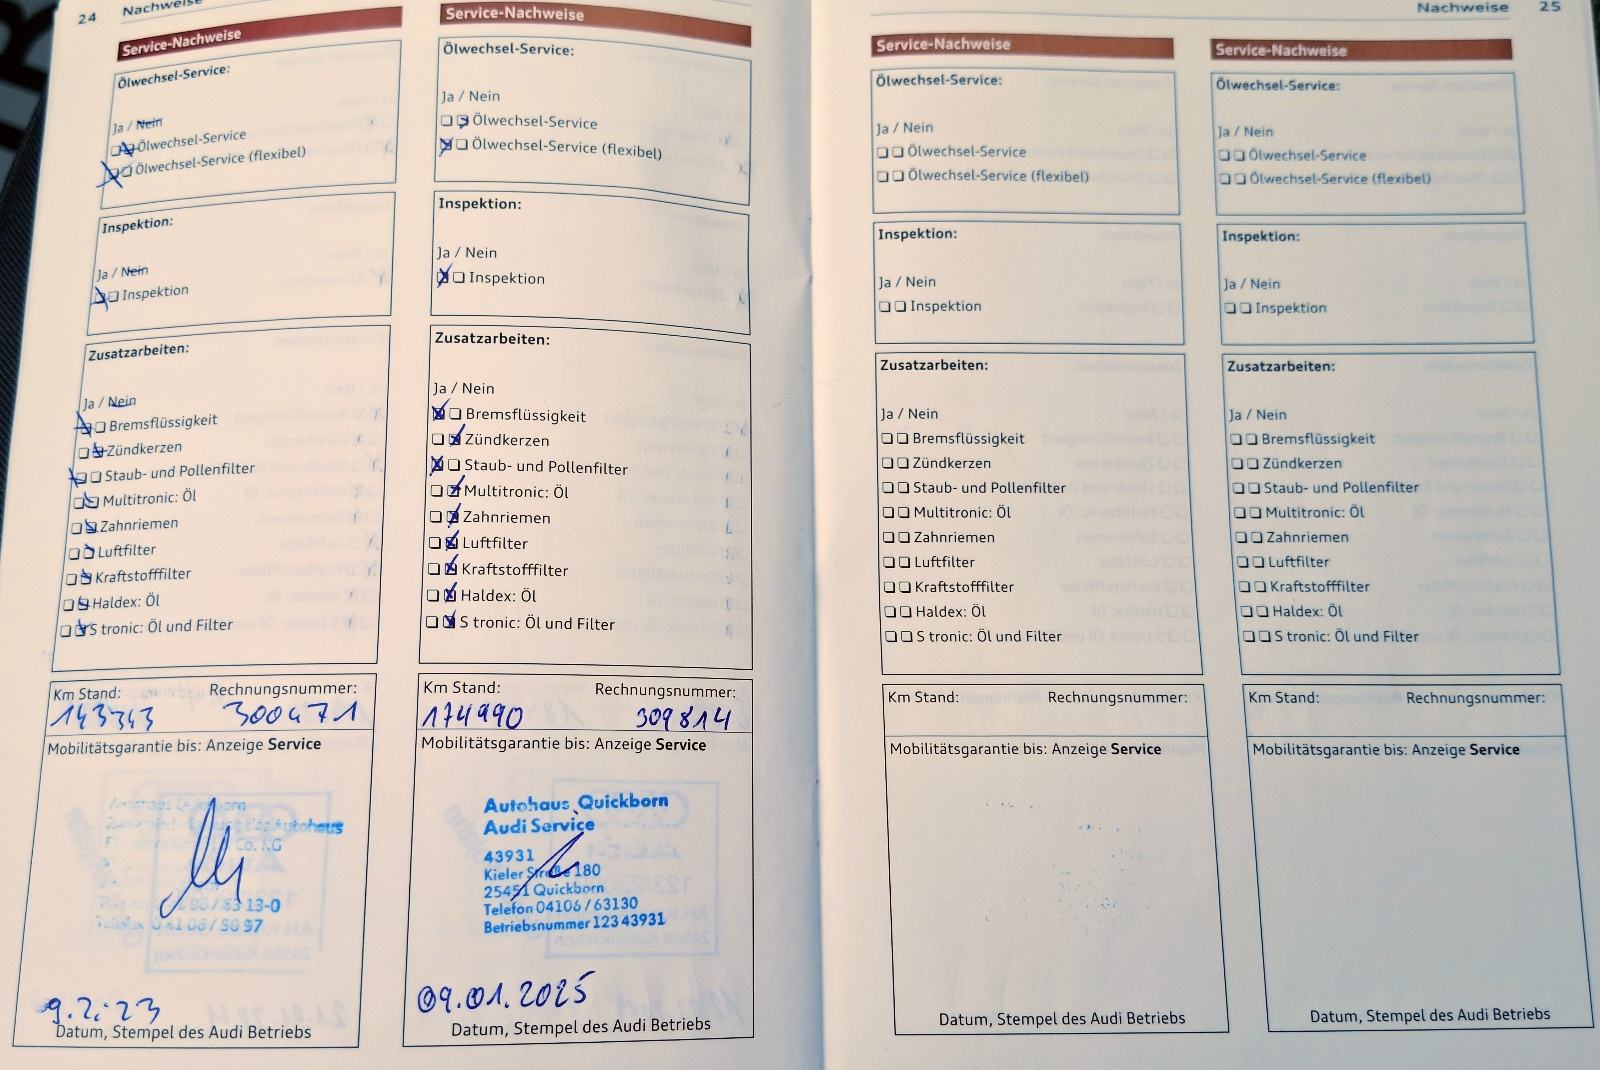 24 Nachweise
Service-Nachweise
Ölwechsel-Service:
Ja / Nein
Ölwechsel-Service
Ölwechsel-Service (flexibel)
Inspektion:
Ja / Nein
Inspektion
Zusatzarbeiten:
Ja / Nein
Bremsflüssigkeit
Zündkerzen
Staub- und Pollenfilter
Multitronic: Öl
Zahnriemen
Luftfilter
Kraftstofffilter
Haldex: Öl
S tronic: Öl und Filter
Km Stand: Rechnungsnummer:
143343 300471
Mobilitätsgarantie bis: Anzeige Service
Autohaus Quickborn
des Autohaus
Co. KG
06/63 13-0
Telefax 0 41 06/50 97
9.2.23
Datum, Stempel des Audi Betriebs
Service-Nachweise
Ölwechsel-Service:
Ja / Nein
Ölwechsel-Service
Ölwechsel-Service (flexibel)
Inspektion:
Ja / Nein
Inspektion
Zusatzarbeiten:
Ja / Nein
Bremsflüssigkeit
Zündkerzen
Staub- und Pollenfilter
Multitronic: Öl
Zahnriemen
Luftfilter
Kraftstofffilter
Haldex: Öl
S tronic: Öl und Filter
Km Stand: Rechnungsnummer:
174990 309814
Mobilitätsgarantie bis: Anzeige Service
Autohaus Quickborn
Audi Service
43931
Kieler Straße 180
25451 Quickborn
Telefon 04106/63130
Betriebsnummer 123 43931
09.01.2025
Datum, Stempel des Audi Betriebs
Nachweise 25
Service-Nachweise
Ölwechsel-Service:
Ja / Nein
Ölwechsel-Service
Ölwechsel-Service (flexibel)
Inspektion:
Ja / Nein
Inspektion
Zusatzarbeiten:
Ja / Nein
Bremsflüssigkeit
Zündkerzen
Staub- und Pollenfilter
Multitronic: Öl
Zahnriemen
Luftfilter
Kraftstofffilter
Haldex: Öl
S tronic: Öl und Filter
Km Stand: Rechnungsnummer:
Mobilitätsgarantie bis: Anzeige Service
Datum, Stempel des Audi Betriebs
Service-Nachweise
Ölwechsel-Service:
Ja / Nein
Ölwechsel-Service
Ölwechsel-Service (flexibel)
Inspektion:
Ja / Nein
Inspektion
Zusatzarbeiten:
Ja / Nein
Bremsflüssigkeit
Zündkerzen
Staub- und Pollenfilter
Multitronic: Öl
Zahnriemen
Luftfilter
Kraftstofffilter
Haldex: Öl
S tronic: Öl und Filter
Km Stand: Rechnungsnummer:
Mobilitätsgarantie bis: Anzeige Service
Datum, Stempel des Audi Betriebs